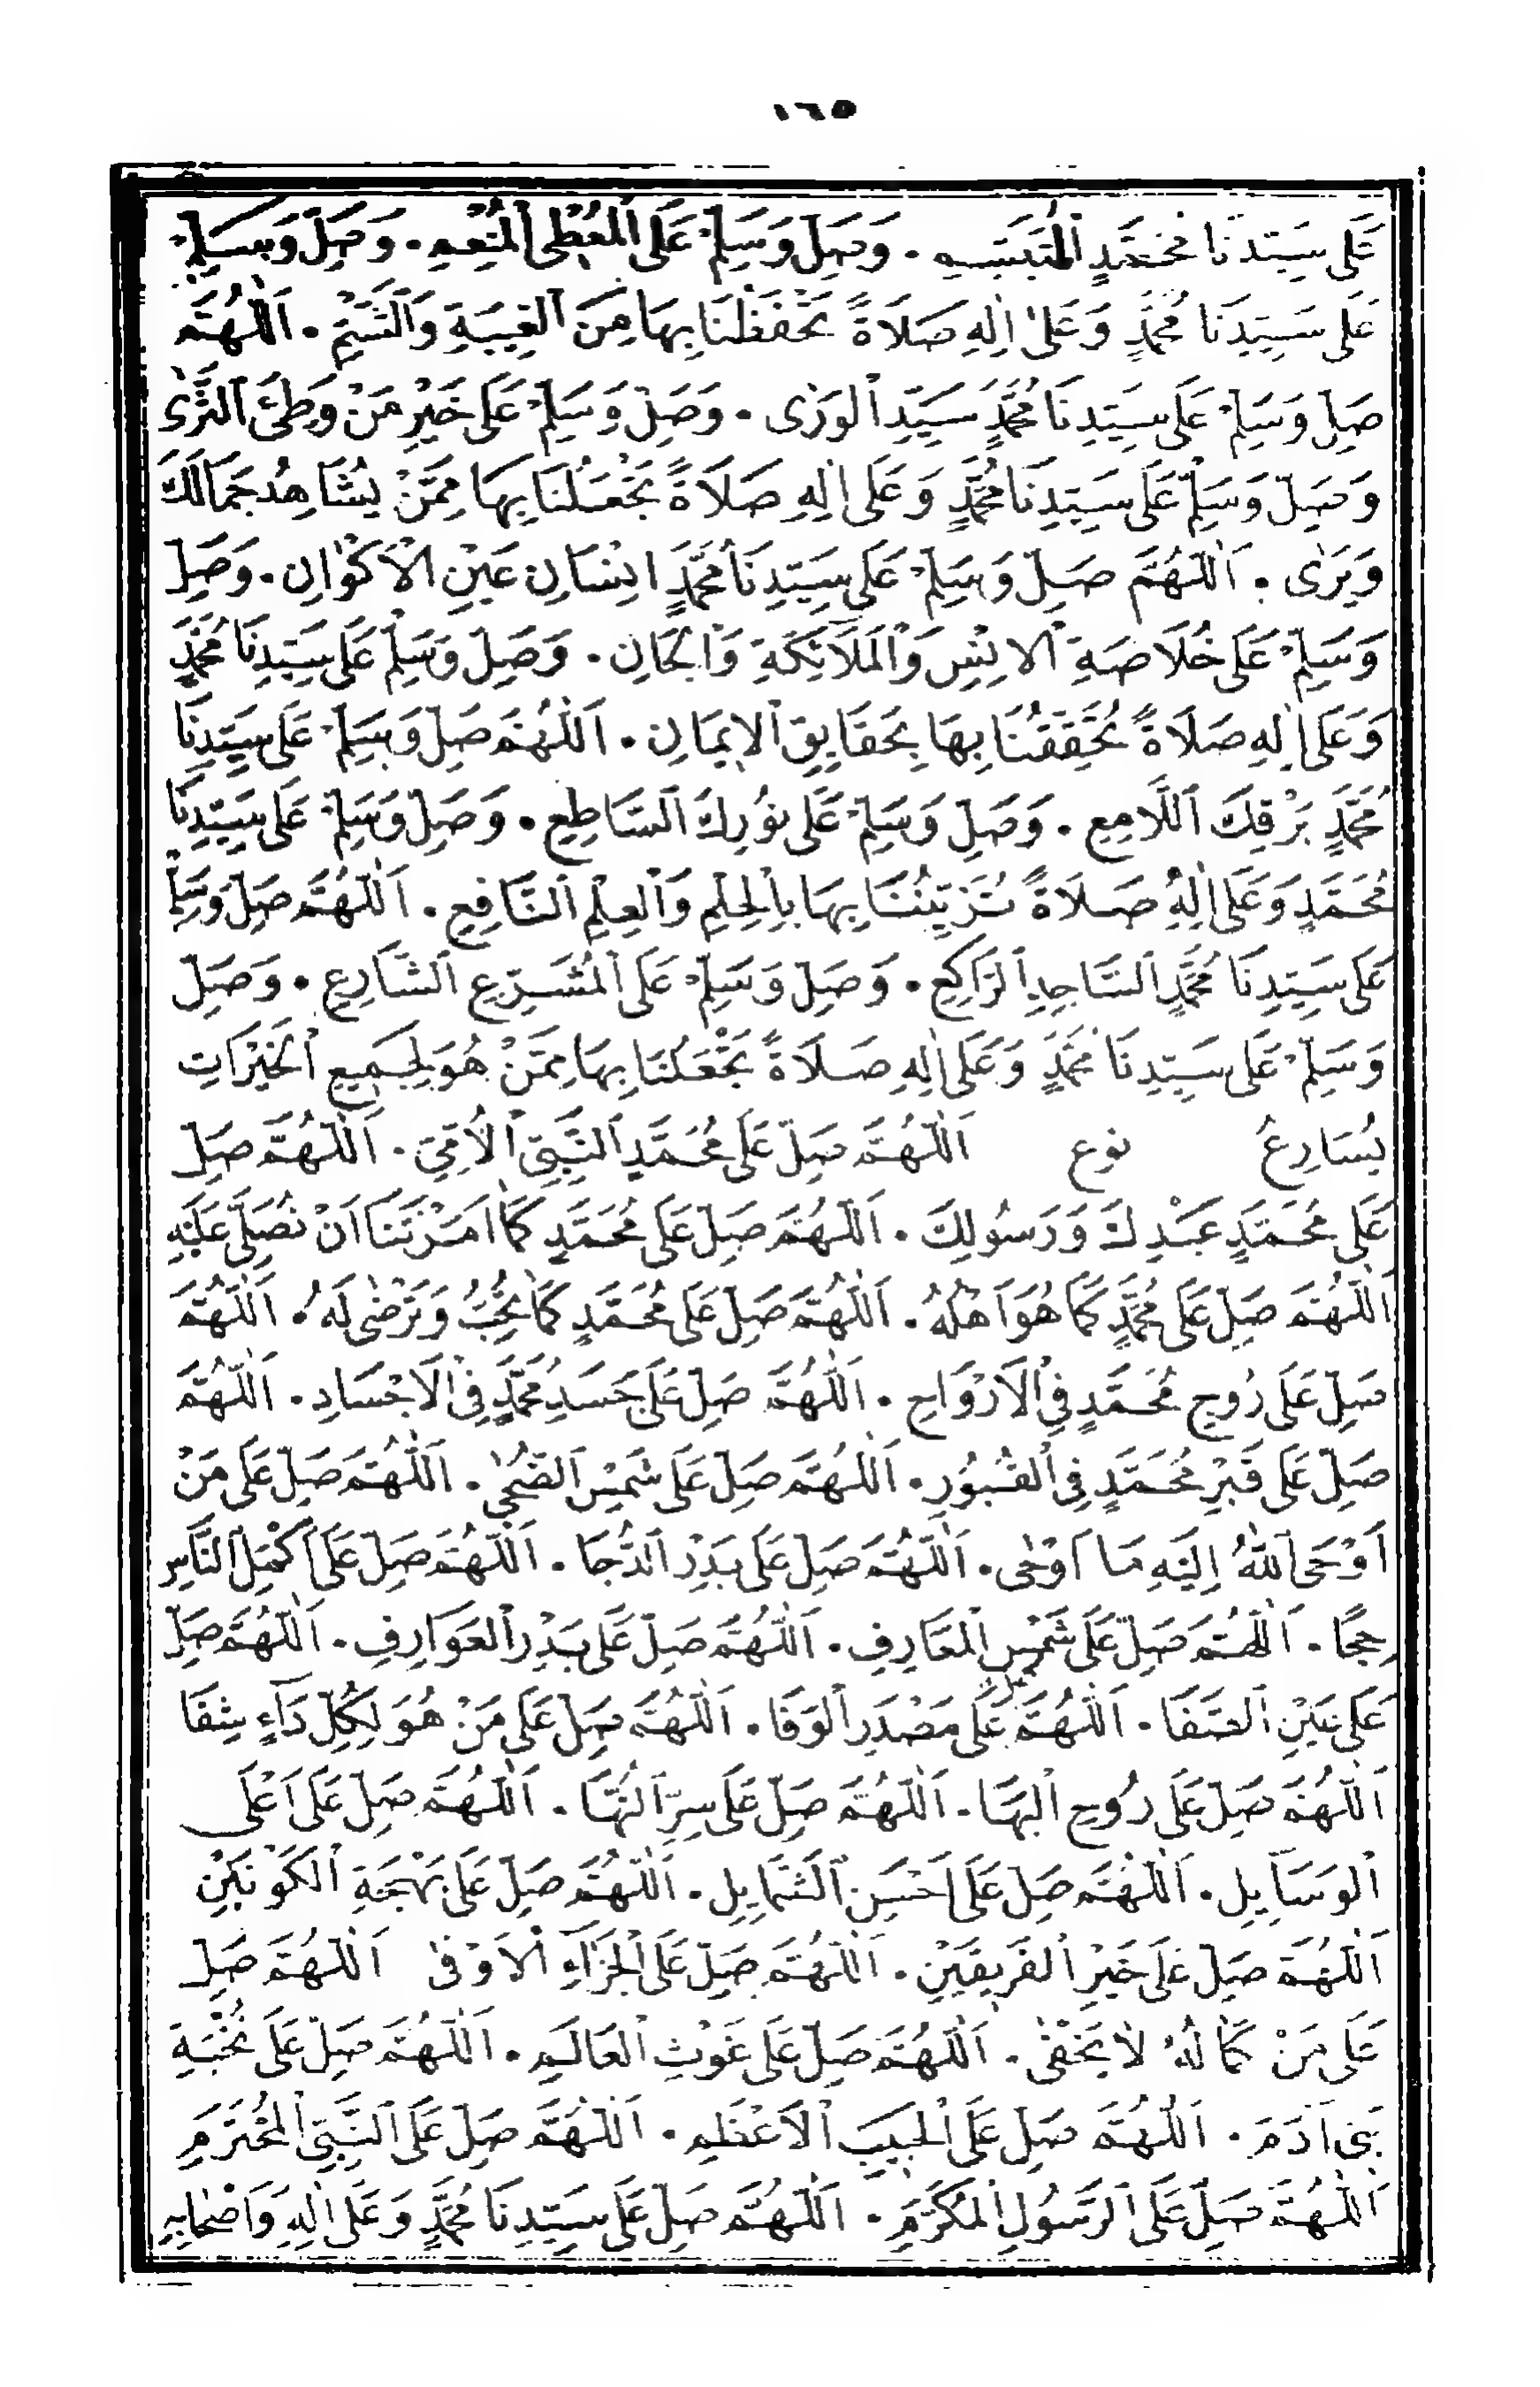 ١٦٥
عَلَى سَيِّدِنَا مُحَمَّدٍ الْمُتَبَسِّمِ . وَصَلِّ وَسَلِّمْ عَلَى الْمُعْطِى الْمُنْعِمِ . وَصَلِّ وَسَلِّمْ
عَلَى سَيِّدِنَا مُحَمَّدٍ وَعَلٰى اٰلِهِ صَلَاةً تَحْفَظُنَا بِهَا مِنَ الْغِيبَةِ وَالشَّتْمِ . اَللّٰهُمَّ
صَلِّ وَسَلِّمْ عَلَى سَيِّدِنَا مُحَمَّدٍ سَيِّدِ الْوَرٰى . وَصَلِّ وَسَلِّمْ عَلَى خَيْرِ مَنْ وَطِئَ الثَّرٰى
وَصَلِّ وَسَلِّمْ عَلَى سَيِّدِنَا مُحَمَّدٍ وَعَلَى اٰلِهِ صَلَاةً تَجْعَلُنَا بِهَا مِمَّنْ يُشَاهِدُ جَمَالَكَ
وَيَرٰى . اَللّٰهُمَّ صَلِّ وَسَلِّمْ عَلَى سَيِّدِنَا مُحَمَّدٍ اِنْسَانِ عَيْنِ الْاَكْوَانِ . وَصَلِّ
وَسَلِّمْ عَلَى خُلَاصَةِ الْاِنْسِ وَالْمَلَائِكَةِ وَالْجَانِ . وَصَلِّ وَسَلِّمْ عَلَى سَيِّدِنَا مُحَمَّدٍ
وَعَلَى اٰلِهِ صَلَاةً تُحَقِّقُنَا بِهَا بِحَقَايِقِ الْاِيمَانِ . اَللّٰهُمَّ صَلِّ وَسَلِّمْ عَلَى سَيِّدِنَا
مُحَمَّدٍ بَرْقِكَ اللَّامِعِ . وَصَلِّ وَسَلِّمْ عَلَى نُورِكَ السَّاطِعِ . وَصَلِّ وَسَلِّمْ عَلَى سَيِّدِنَا
مُحَمَّدٍ وَعَلَى اٰلِهِ صَلَاةً تُزَيِّنُنَا بِهَا بِالْحِلْمِ وَالْعِلْمِ النَّافِعِ . اَللّٰهُمَّ صَلِّ وَسَلِّمْ
عَلَى سَيِّدِنَا مُحَمَّدٍ السَّاجِدِ الرَّاكِعِ . وَصَلِّ وَسَلِّمْ عَلَى الْمُشَرِّعِ الشَّارِعِ . وَصَلِّ
وَسَلِّمْ عَلَى سَيِّدِنَا مُحَمَّدٍ وَعَلَى اٰلِهِ صَلَاةً تَجْعَلُنَا بِهَا مِمَّنْ هُوَ لِجَمِيعِ الْخَيْرَاتِ
يُسَارِعُ نوع اَللّٰهُمَّ صَلِّ عَلَى مُحَمَّدٍ النَّبِيِّ الْاُمِّيِّ . اَللّٰهُمَّ صَلِّ
عَلَى مُحَمَّدٍ عَبْدِكَ وَرَسُولِكَ . اَللّٰهُمَّ صَلِّ عَلَى مُحَمَّدٍ كَمَا اَمَرْتَنَا اَنْ نُصَلِّىَ عَلَيْهِ
اَللّٰهُمَّ صَلِّ عَلَى مُحَمَّدٍ كَمَا هُوَ اَهْلُهُ . اَللّٰهُمَّ صَلِّ عَلَى مُحَمَّدٍ كَمَا تُحِبُّ وَتَرْضٰى لَهُ . اَللّٰهُمَّ
صَلِّ عَلَى رُوحِ مُحَمَّدٍ فِى الْاَرْوَاحِ . اَللّٰهُمَّ صَلِّ عَلَى جَسَدِ مُحَمَّدٍ فِى الْاَجْسَادِ . اَللّٰهُمَّ
صَلِّ عَلَى قَبْرِ مُحَمَّدٍ فِى الْقُبُورِ . اَللّٰهُمَّ صَلِّ عَلَى شَمْسِ الضُّحٰى . اَللّٰهُمَّ صَلِّ عَلَى مَنْ
اَوْحَى اللّٰهُ اِلَيْهِ مَا اَوْحٰى . اَللّٰهُمَّ صَلِّ عَلَى بَدْرِ الدُّجَا . اَللّٰهُمَّ صَلِّ عَلَى اَكْمَلِ النَّاسِ
حِجًا . اَللّٰهُمَّ صَلِّ عَلَى شَمْسِ الْمَعَارِفِ . اَللّٰهُمَّ صَلِّ عَلَى بَدْرِ الْعَوَارِفِ . اَللّٰهُمَّ صَلِّ
عَلَى عَيْنِ الصَّفَا . اَللّٰهُمَّ صل عَلَى مَصْدَرِ الْوَفَا . اَللّٰهُمَّ صَلِّ عَلَى مَنْ هُوَ لِكُلِّ دَاءٍ شِفَا
اَللّٰهُمَّ صَلِّ عَلَى رُوحِ الْبَهَا . اَللّٰهُمَّ صَلِّ عَلَى سِرِّ النُّهَا . اَللّٰهُمَّ صَلِّ عَلَى اَعْلَى
الْوَسَايِلِ . اَللّٰهُمَّ صَلِّ عَلَى اَحْسَنِ الشَّمَايِلِ . اَللّٰهُمَّ صَلِّ عَلَى بَهْجَةِ الْكَوْنَيْنِ
اَللّٰهُمَّ صَلِّ عَلَى خَيْرِ الْفَرِيقَيْنِ . اَللّٰهُمَّ صَلِّ عَلَى الْجَزَاءِ الْاَوْفٰى اَللّٰهُمَّ صَلِّ
عَلَى مَنْ كَمَالُهُ لَا يَخْفٰى . اَللّٰهُمَّ صَلِّ عَلَى غَوْثِ الْعَالَمِ . اَللّٰهُمَّ صَلِّ عَلَى نُخْبَةِ
بَنِى اٰدَمَ . اَللّٰهُمَّ صَلِّ عَلَى الْحَبِيبِ الْاَعْظَمِ . اَللّٰهُمَّ صَلِّ عَلَى النَّبِيِّ الْمُحْتَرَمِ
اَللّٰهُمَّ صَلِّ عَلَى الرَّسُولِ الْمُكَرَّمِ . اَللّٰهُمَّ صَلِّ عَلَى سَيِّدِنَا مُحَمَّدٍ وَعَلَى اٰلِهِ وَاَصْحَابِهِ